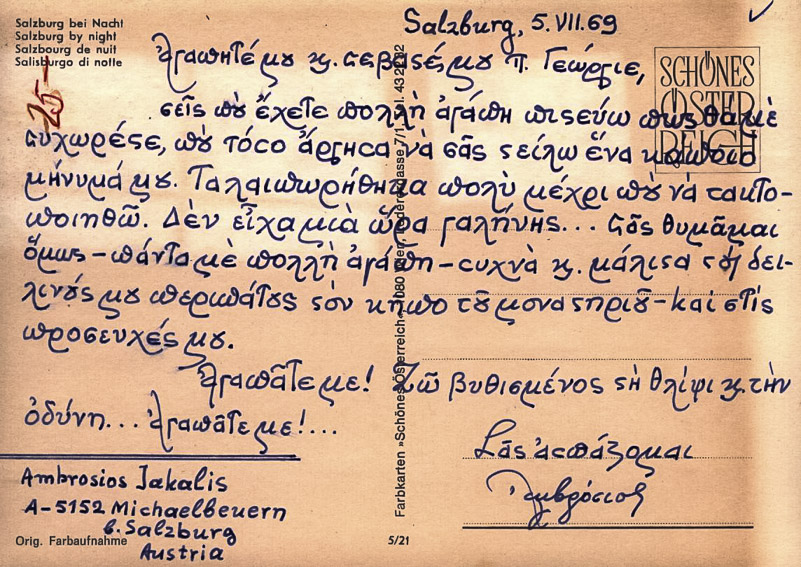 Salzburg bei Nacht
Salzburg by night
Salzbourg de nuit
Salisburgo di notte
25-
Salzburg, 5.VII.69
Ἀγαπητέ μου κ. σεβαστέ μου π. Γεώργιε,
σεῖς ποὺ ἔχετε πολλὴ ἀγάπη πιστεύω πως θα μὲ
συχωρέστε, ποὺ τόσο ἄργησα νὰ σᾶς στείλω ἕνα κάποιο
μήνυμά μου. Ταλαιπωρήθηκα πολὺ μέχρι ποὺ νὰ τακτο-
ποιηθῶ. Δὲν εἶχα μιὰ ὥρα γαλήνης... Σᾶς θυμᾶμαι
ὅμως – πάντα μὲ πολλὴ ἀγάπη – συχνὰ κ. μάλιστα στοὺς δει-
λινούς μου περιπάτους στὸν κῆπο τοῦ μοναστηριοῦ – καὶ στὶς
προσευχές μου.
Ἀγαπᾶτε με! Ζῶ βυθισμένος στὴ θλίψι κ. τὴν
ὀδύνη... Ἀγαπᾶτε με!...
Σᾶς ἀσπάζομαι
Ἀμβρόσιος
Ambrosios Jakalis
A-5152 Michaelbeuern
b. Salzburg
Austria
Orig. Farbaufnahme
5/21
SCHÖNES
ÖSTER
REICH
Farbkarten »Schönes Österreich«